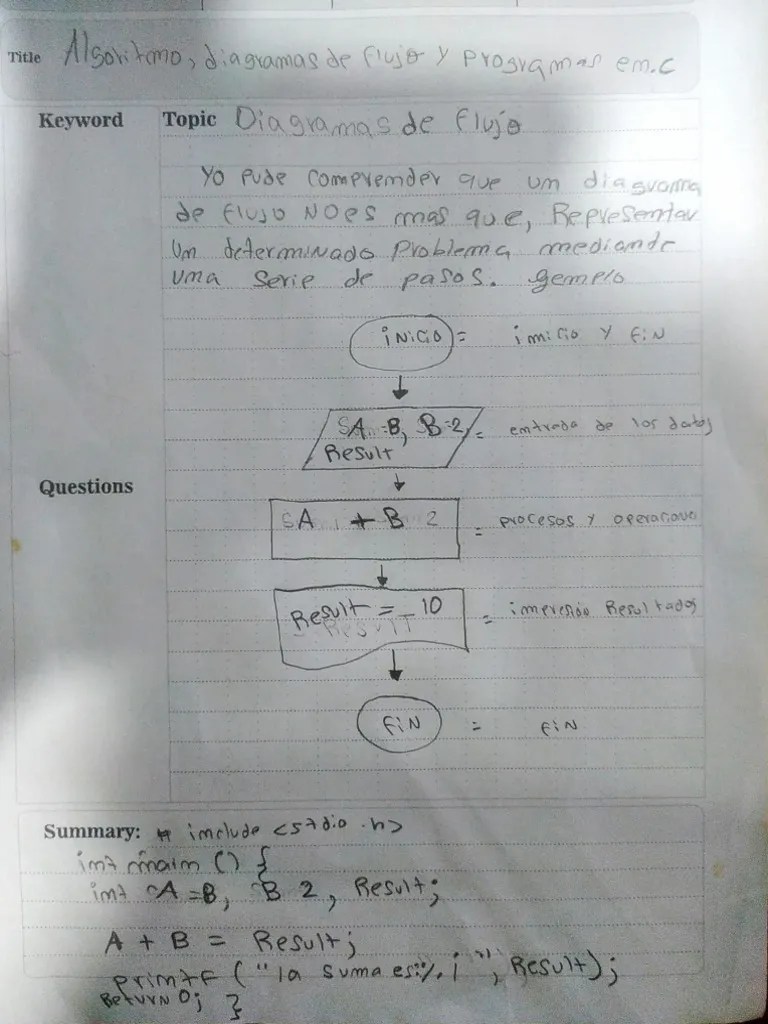 Title Algoritmo, diagramas de flujo y programas em.c
Keyword
Topic Diagramas de flujo
Yo pude compremder que um diagrama
de flujo NO es mas que, Representar
Um determinado problema mediamde
uma serie de pasos. Ejemplo
iNiCiO = imicio y fiN
SA =8, B=2,
Result = emtrada de los datos
Questions
A + B 2 = procesos y operaciones
Result = 10
Result = impresión Resultados
FiN = fiN
Summary: # imclude <stdio.h>
imt maim () {
imt A =8, B 2, Result;
A + B = Result;
printf ("la suma es:%.i", Result);
Return 0; }